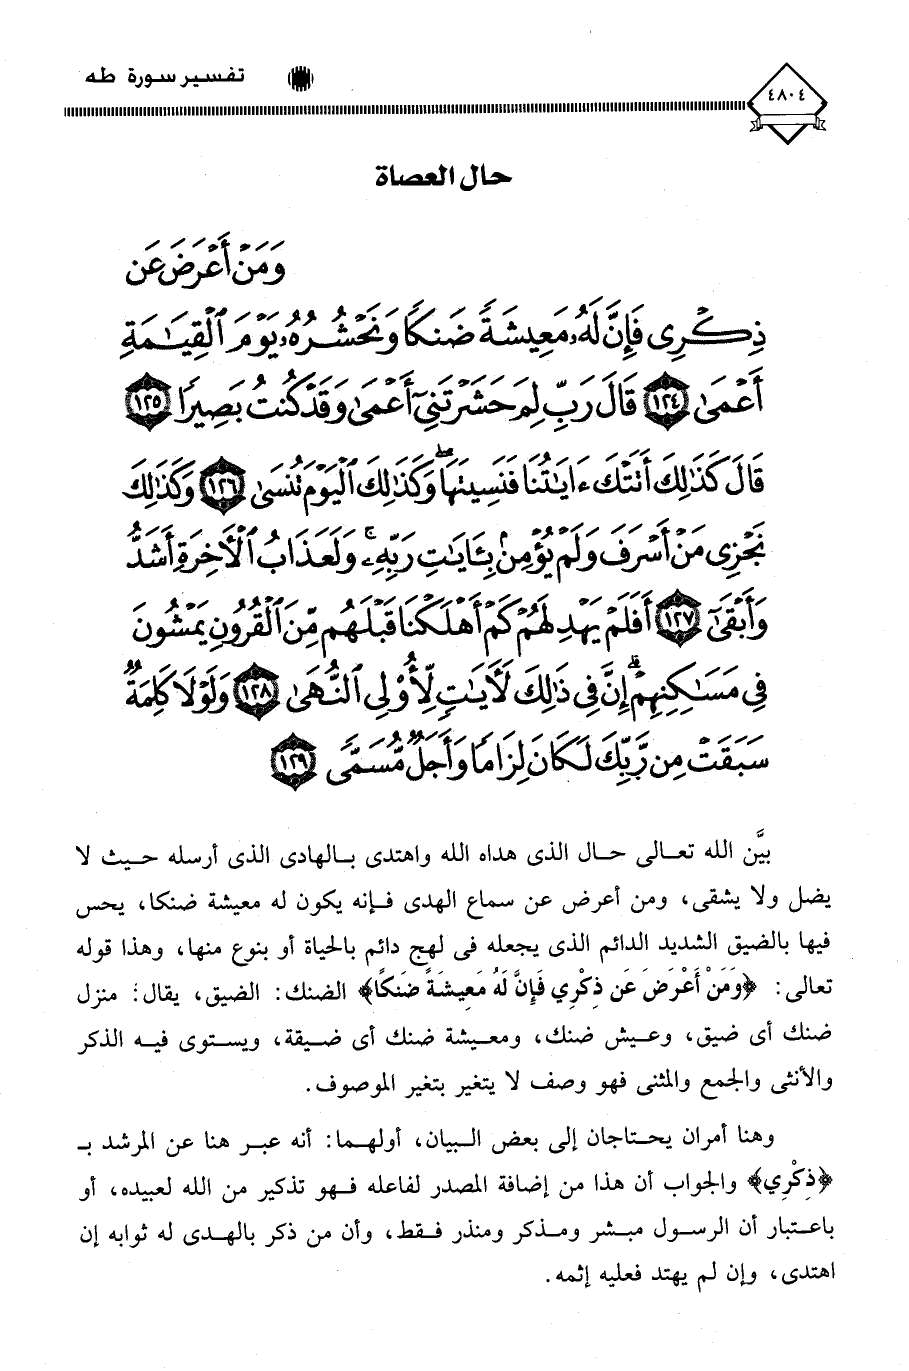 ٤٨٠٤
تفسير سورة طه
حال العصاة
وَمَنْ أَعْرَضَ عَن
ذِكْرِى فَإِنَّ لَهُۥ مَعِيشَةً ضَنكًا وَنَحْشُرُهُۥ يَوْمَ ٱلْقِيَٰمَةِ
أَعْمَىٰ ١٢٤ قَالَ رَبِّ لِمَ حَشَرْتَنِىٓ أَعْمَىٰ وَقَدْ كُنتُ بَصِيرًا ١٢٥
قَالَ كَذَٰلِكَ أَتَتْكَ ءَايَٰتُنَا فَنَسِيتَهَا ۖ وَكَذَٰلِكَ ٱلْيَوْمَ تُنسَىٰ ١٢٦ وَكَذَٰلِكَ
نَجْزِى مَنْ أَسْرَفَ وَلَمْ يُؤْمِنۢ بِـَٔايَٰتِ رَبِّهِۦ ۚ وَلَعَذَابُ ٱلْأَخِرَةِ أَشَدُّ
وَأَبْقَىٰٓ ١٢٧ أَفَلَمْ يَهْدِ لَهُمْ كَمْ أَهْلَكْنَا قَبْلَهُم مِّنَ ٱلْقُرُونِ يَمْشُونَ
فِى مَسَٰكِنِهِمْ ۗ إِنَّ فِى ذَٰلِكَ لَأَيَٰتٍ لِّأُو۟لِى ٱلنُّهَىٰ ١٢٨ وَلَوْلَا كَلِمَةٌ
سَبَقَتْ مِن رَّبِّكَ لَكَانَ لِزَامًا وَأَجَلٌ مُّسَمًّى ١٢٩
بيَّن الله تعالى حال الذى هداه الله واهتدى بالهادى الذى أرسله حيث لا
يضل ولا يشقى، ومن أعرض عن سماع الهدى فإنه يكون له معيشة ضنكا، يحس
فيها بالضيق الشديد الدائم الذى يجعله فى لهج دائم بالحياة أو بنوع منها، وهذا قوله
تعالى: ﴿وَمَنْ أَعْرَضَ عَن ذِكْرِي فَإِنَّ لَهُ مَعِيشَةً ضَنكًا﴾ الضنك: الضيق، يقال: منزل
ضنك أى ضيق، وعيش ضنك، ومعيشة ضنك أى ضيقة، ويستوى فيه الذكر
والأنثى والجمع والمثنى فهو وصف لا يتغير بتغير الموصوف.
وهنا أمران يحتاجان إلى بعض البيان، أولهما: أنه عبر هنا عن المرشد بـ
﴿ذِكْرِي﴾ والجواب أن هذا من إضافة المصدر لفاعله فهو تذكير من الله لعبيده، أو
باعتبار أن الرسول مبشر ومذكر ومنذر فقط، وأن من ذكر بالهدى له ثوابه إن
اهتدى، وإن لم يهتد فعليه إثمه.